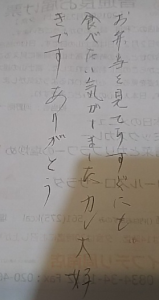 お弁当を見てすぐにも
食べたい気がしましたカレー大好
きです ありがとう